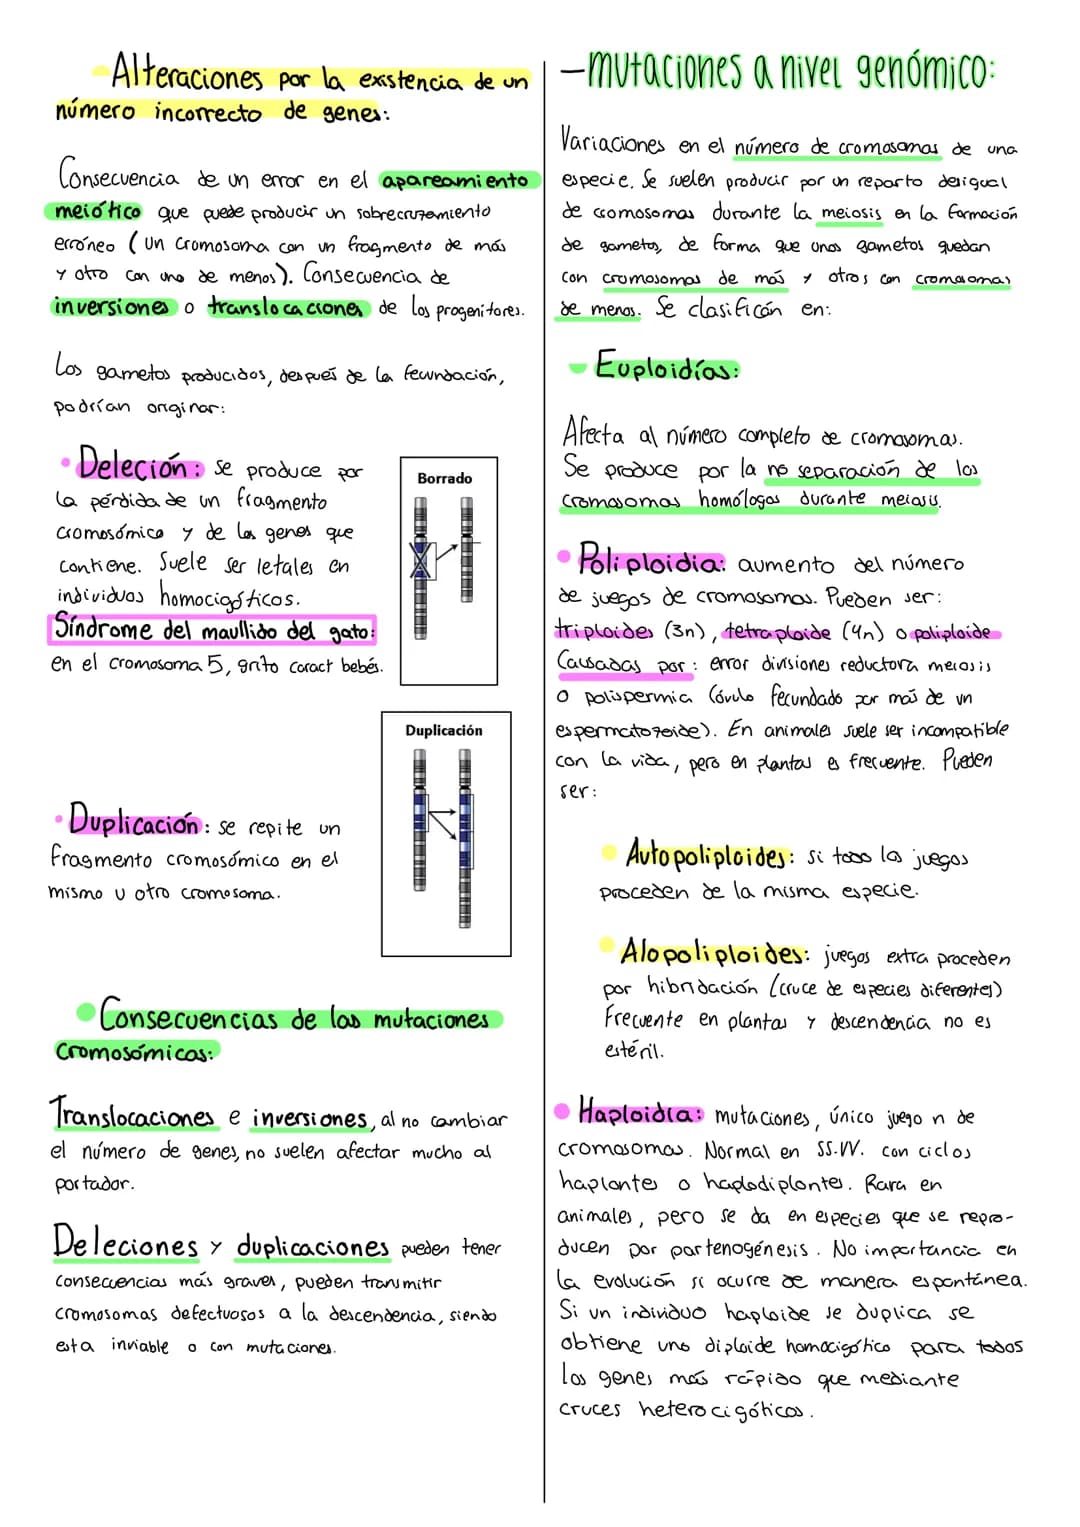 Alteraciones por la existencia de un
número incorrecto de genes:
Consecuencia de un error en el apareamiento
meiótico que puede producir un sobrecruzamiento
erróneo (un cromosoma con un fragmento de más
y otro con uno de menos). Consecuencia de
inversiones o translocaciones de los progenitores.
Los gametos producidos, después de la fecundación,
podrían originar:
• Deleción: se produce por
la pérdida de un fragmento
cromosómico y de los genes que
contiene. Suele ser letales en
individuos homocigóticos.
Síndrome del maullido del gato:
en el cromosoma 5, grito caract bebés.
Borrado
Duplicación
• Duplicación: se repite un
fragmento cromosómico en el
mismo u otro cromosoma.
• Consecuencias de las mutaciones
cromosómicas:
Translocaciones e inversiones, al no cambiar
el número de genes, no suelen afectar mucho al
portador.
Deleciones y duplicaciones pueden tener
consecuencias más graves, pueden transmitir
cromosomas defectuosos a la descendencia, siendo
esta inviable o con mutaciones.
-mutaciones a nivel genómico:
Variaciones en el número de cromosomas de una
especie. Se suelen producir por un reparto desigual
de cromosomas durante la meiosis en la formación
de gametos, de forma que unos gametos quedan
con cromosomas de más y otros con cromosomas
de menos. Se clasifican en:
- Euploidías:
Afecta al número completo de cromosomas.
Se produce por la no separación de los
cromosomas homólogos durante meiosis.
• Poliploidia: aumento del número
de juegos de cromosomas. Pueden ser:
triploides (3n), tetraploide (4n) o poliploide
Causadas por: error divisiones reductora meiosis
o polispermia (óvulo fecundado por más de un
espermatozoide). En animales suele ser incompatible
con la vida, pero en plantas es frecuente. Pueden
ser:
• Autopoliploides: si todo los juegos
proceden de la misma especie.
• Alopoliploides: juegos extra proceden
por hibridación (cruce de especies diferentes)
Frecuente en plantas y descendencia no es
estéril.
• Haploidia: mutaciones, único juego n de
cromosomas. Normal en SS.VV. con ciclos
haplontes o haplodiplontes. Rara en
animales, pero se da en especies que se repro-
ducen por partenogénesis. No importancia en
la evolución si ocurre de manera espontánea.
Si un individuo haploide se duplica se
obtiene uno diploide homocigótico para todos
los genes más rápido que mediante
cruces heterocigóticos.